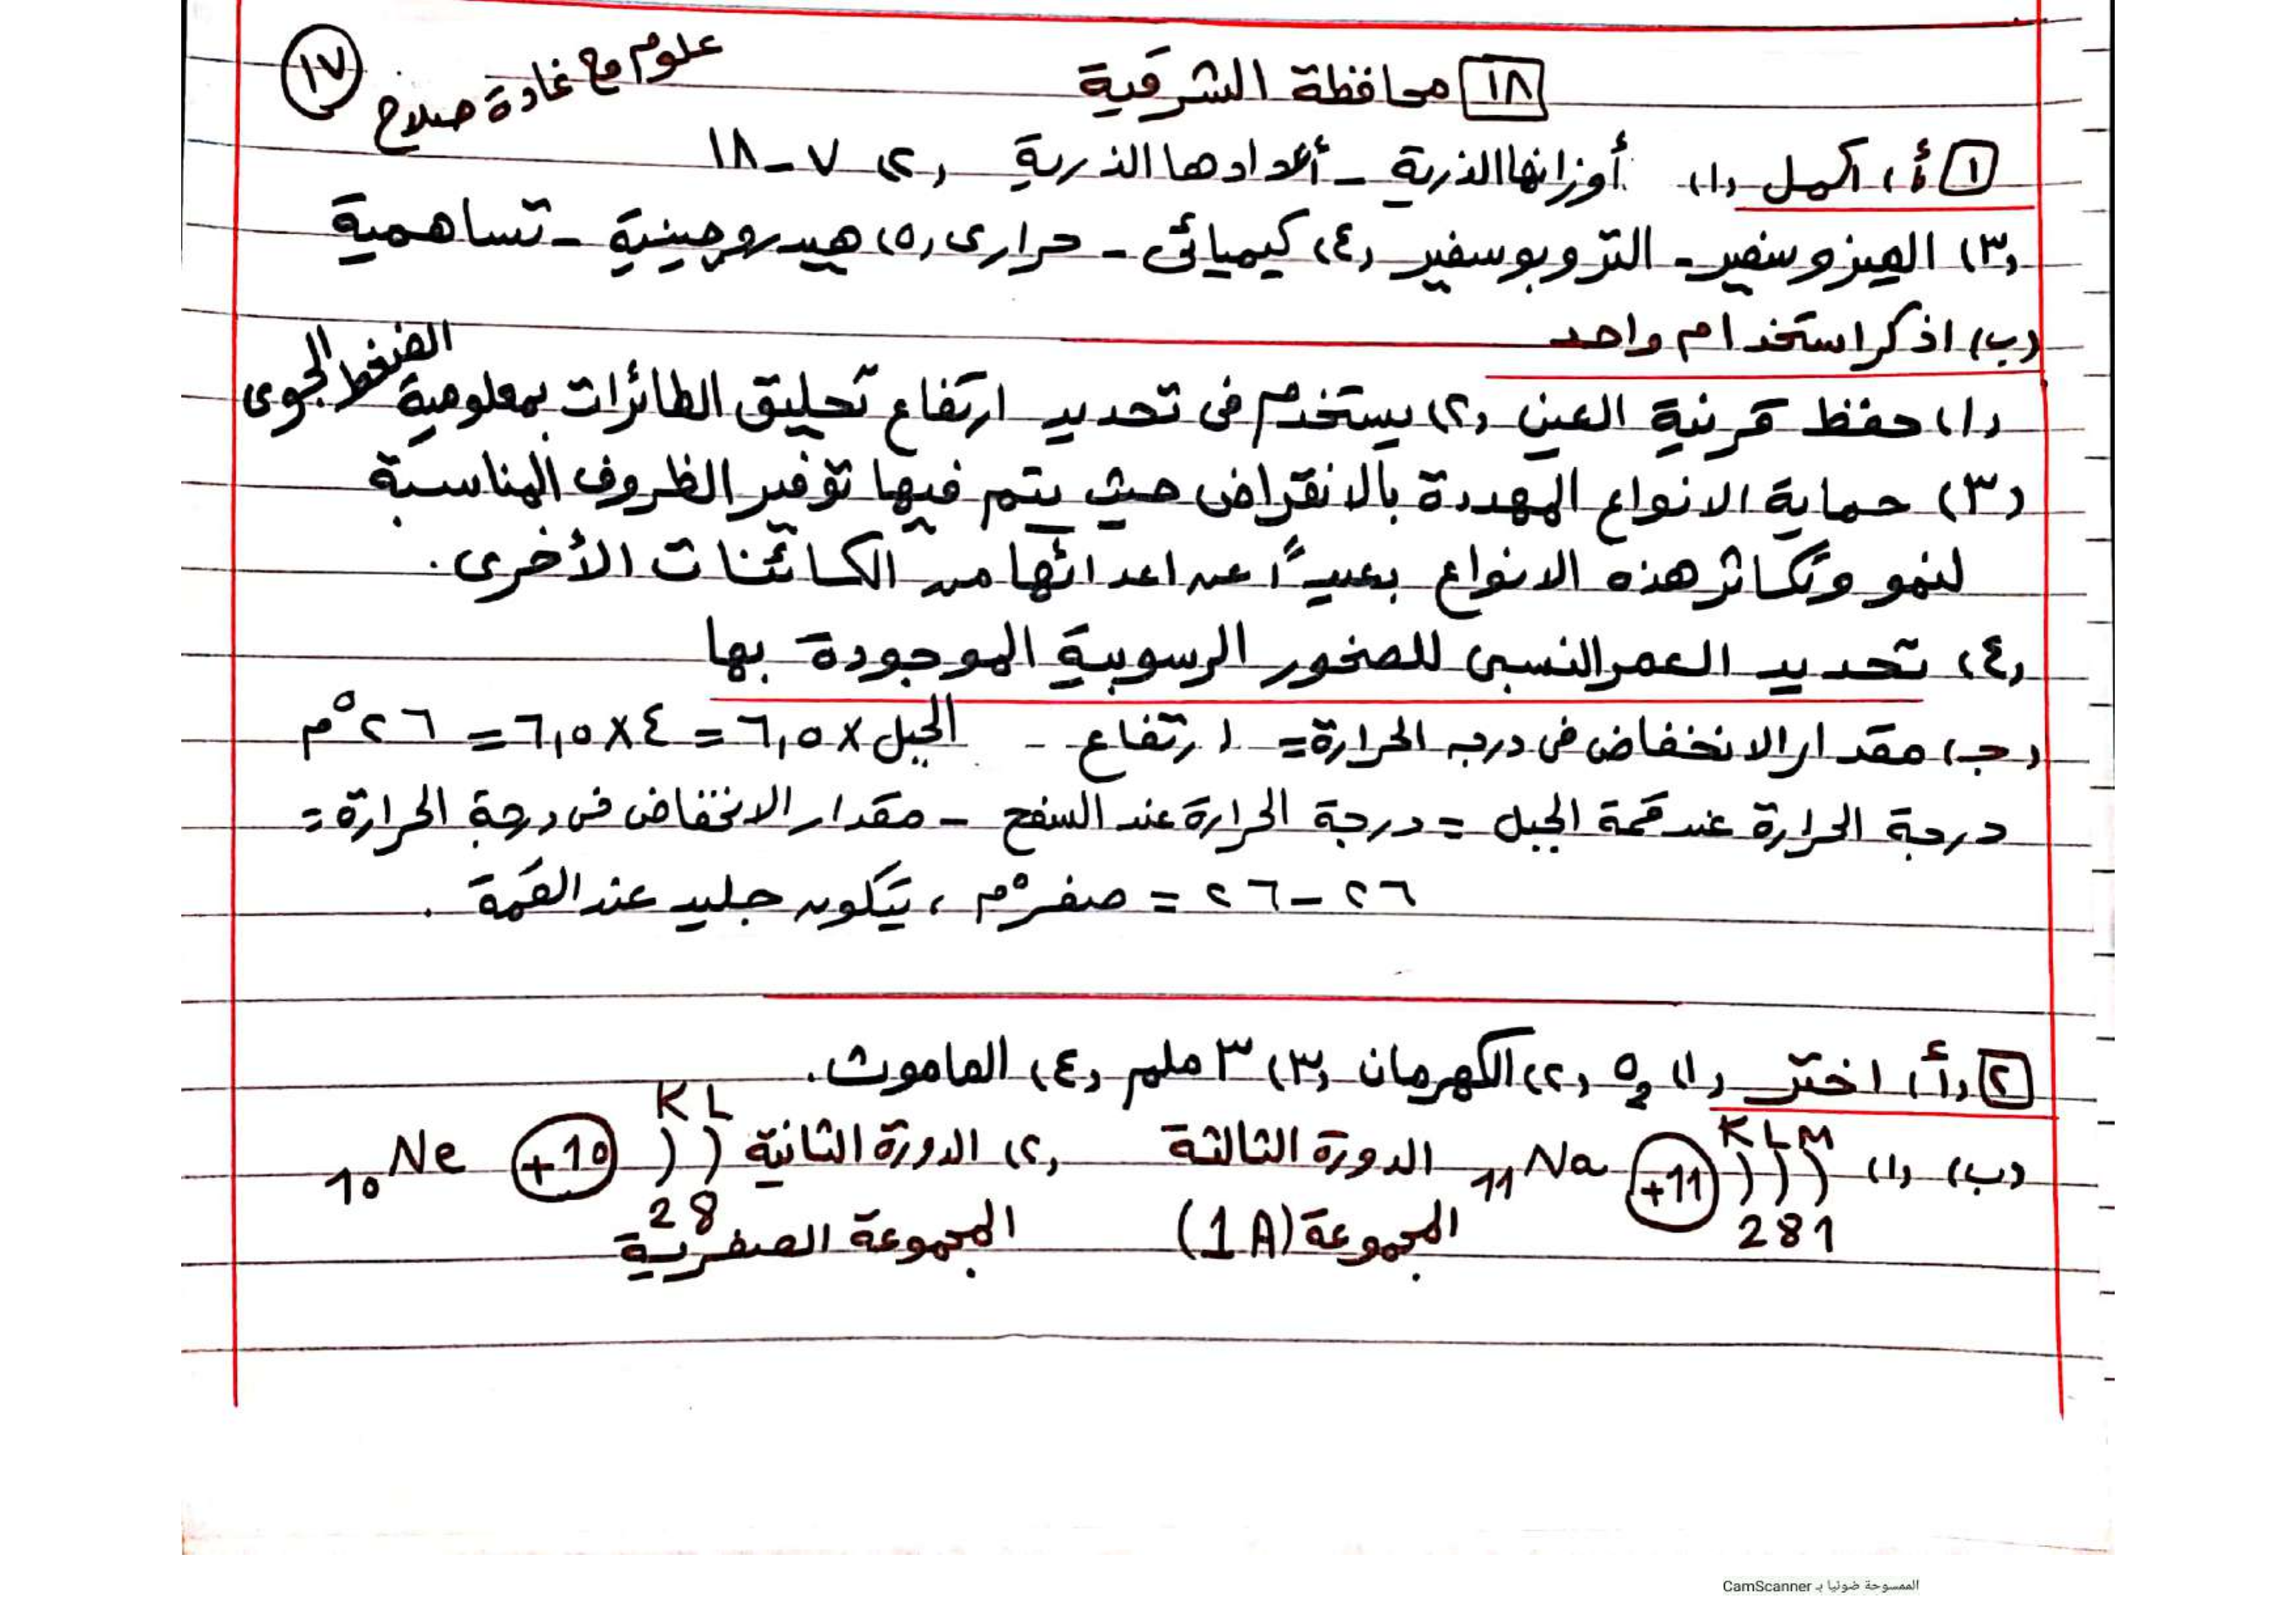 علوم مع غادة صلاح ١٧
١٨ محافظة الشرقية
١ (أ) أكمل (١) أوزانها الذرية - أعدادها الذرية (٢) ٧ - ١٨
(٣) الميزوسفير - التروبوسفير (٤) كيميائى - حرارى (٥) هيدروجينية - تساهمية
(ب) اذكر استخدام واحد
(١) حفظ قرنية العين (٢) يستخدم فى تحديد ارتفاع تحليق الطائرات بمعلومية الضغط الجوى
(٣) حماية الانواع المهددة بالانقراض حيث يتم فيها توفير الظروف المناسبة
لنمو وتكاثر هذه الانواع بعيداً عن اعدائها من الكائنات الأخرى.
(٤) تحديد العمر النسبى للصخور الرسوبية الموجودة بها
(ج) مقدار الانخفاض فى درجه الحرارة = ارتفاع - الجبل × ٦,٥ = ٤ × ٦,٥ = ٢٦ °م
درجة الحرارة عند قمة الجبل = درجة الحرارة عند السفح - مقدار الانخفاض فى درجة الحرارة =
٢٦ - ٢٦ = صفر °م ، يتكون جليد عند القمة .
٢ (أ) اختر (١) O₂ (٢) الكهرمان (٣) ٣ ملم (٤) الماموث.
(ب) (١) K L M +11 ₁₁Na الدورة الثالثة (٢) الدورة الثانية K L +10 ₁₀Ne
2 8 1 المجموعة (1A) المجموعة الصفرية 2 8
الممسوحة ضوئيا بـ CamScanner